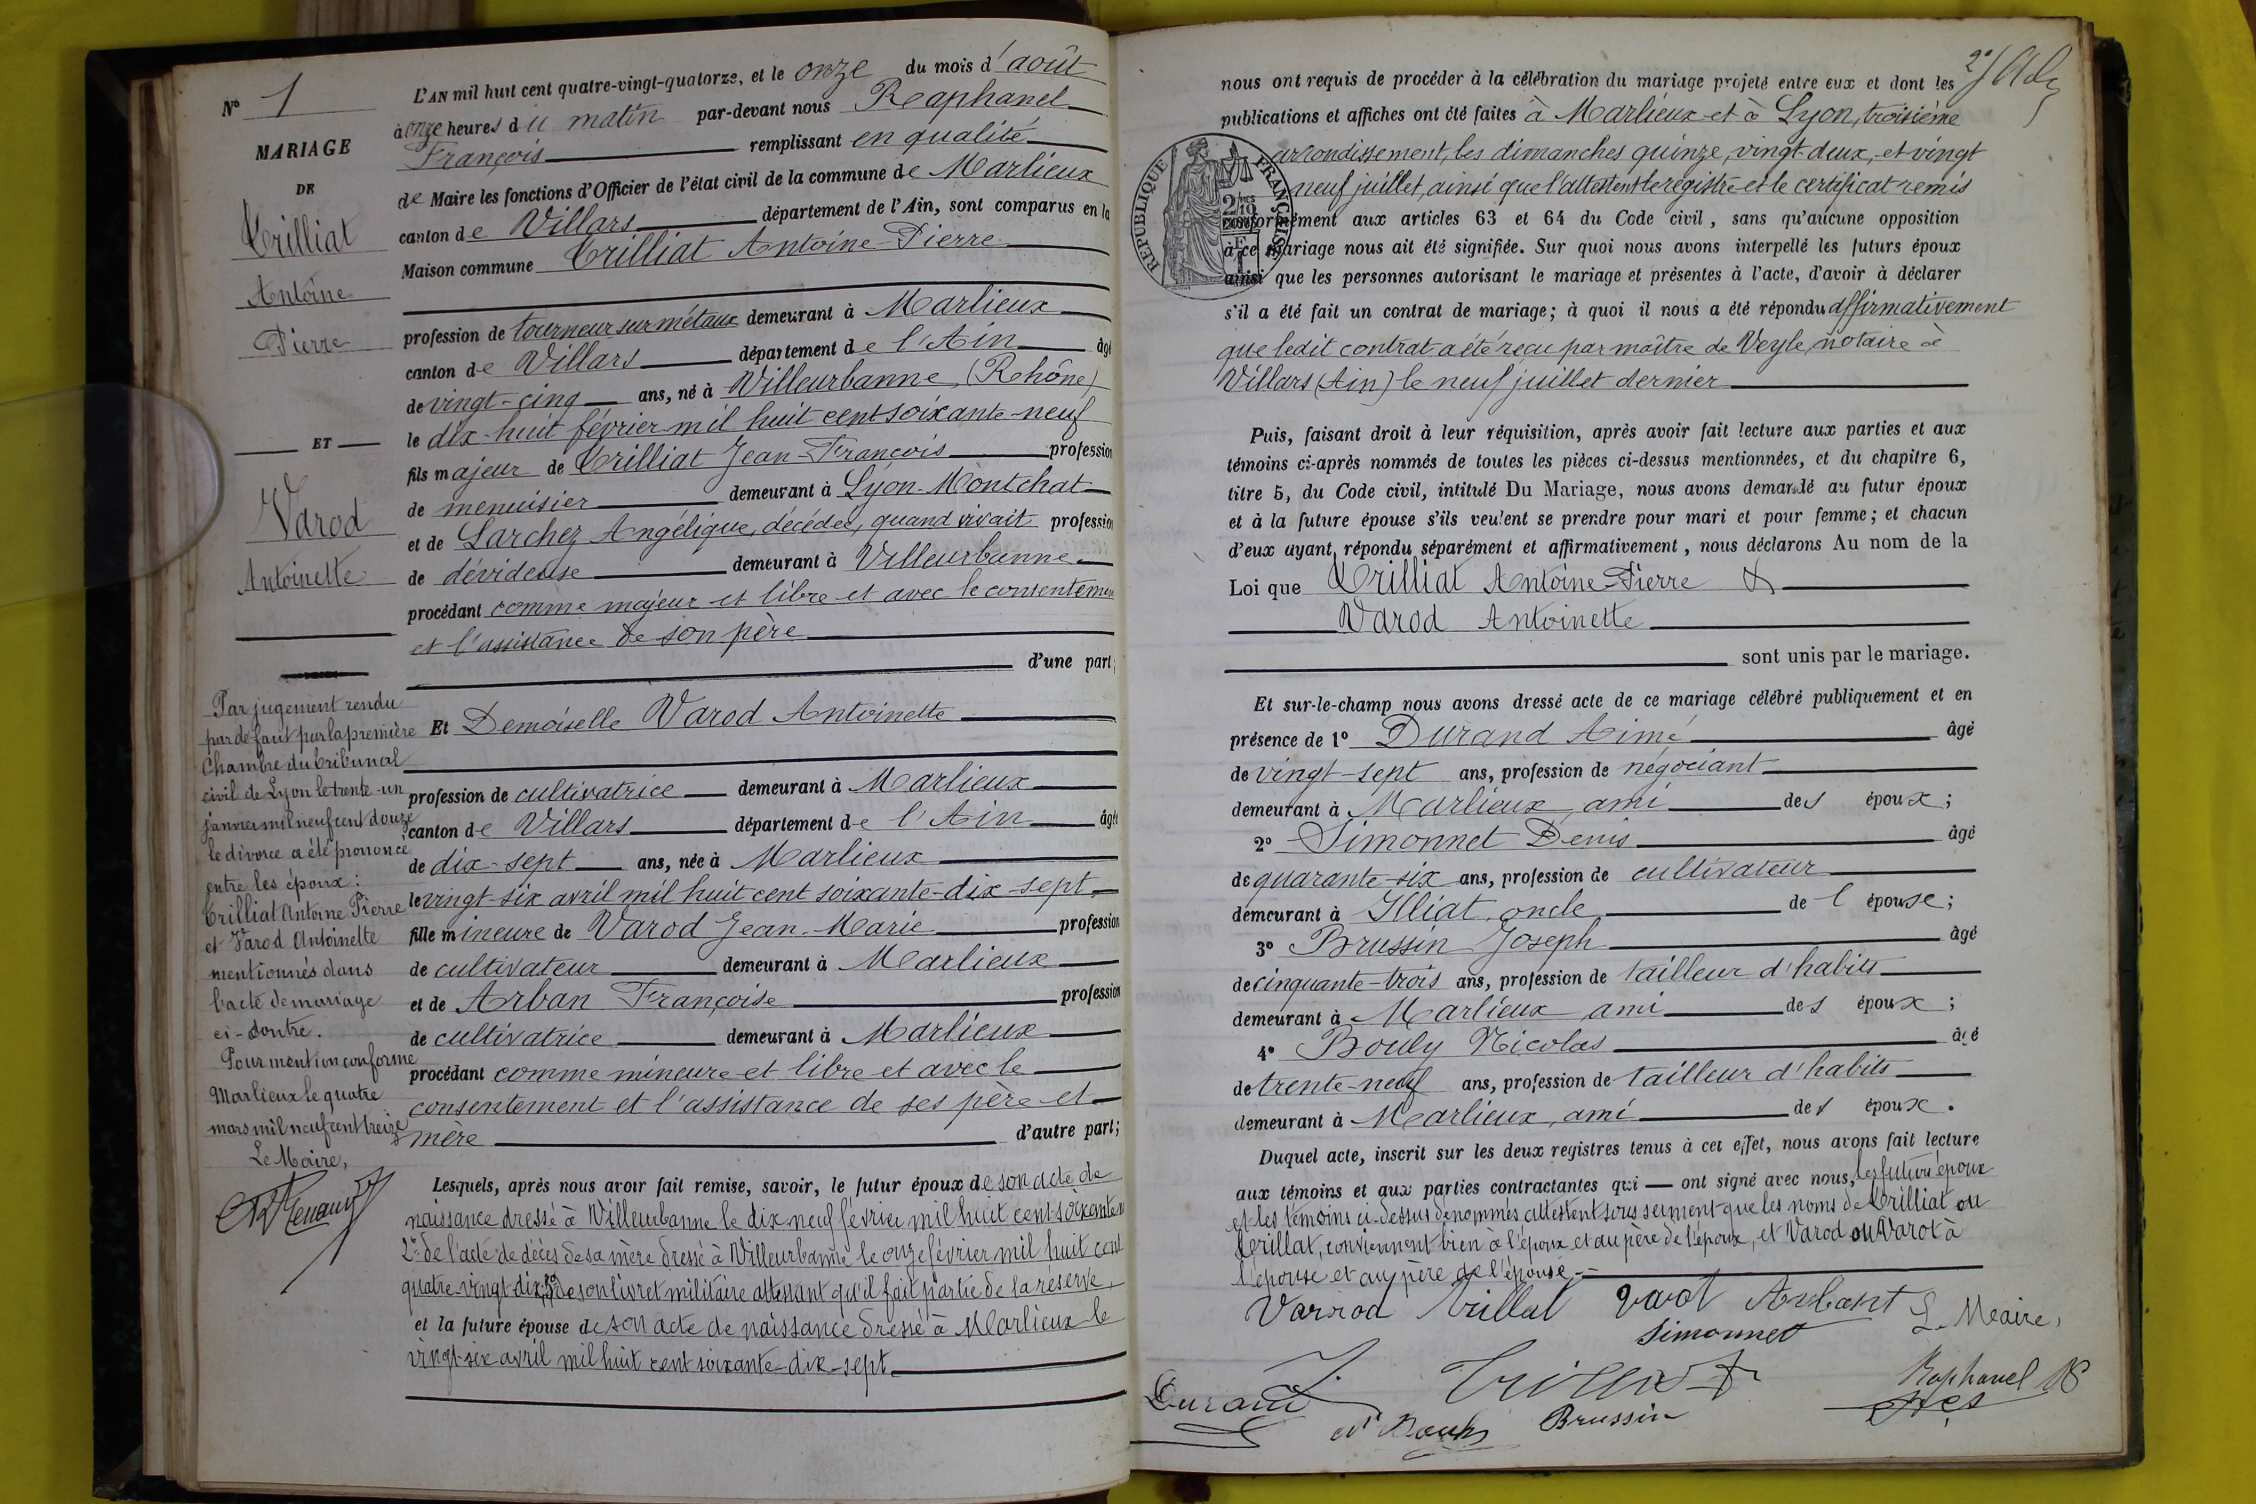 N° 1
MARIAGE
DE
Trilliat
Antoine
Pierre
ET
Varod
Antoinette
Par jugement rendu
par défaut par la première
Chambre du tribunal
civil de Lyon le trente-un
janvier mil neuf cent douze
le divorce a été prononcé
entre les époux :
Trilliat Antoine Pierre
et Varod Antoinette
mentionnés dans
l'acte de mariage
ci-contre.
Pour mention conforme
Marlieux le quatre
mars mil neuf cent treize
Le Maire,
L'AN mil huit cent quatre-vingt-quatorze, et le onze du mois d'août
à onze heures du matin par-devant nous Raphanel
François remplissant en qualité
de Maire les fonctions d'Officier de l'état civil de la commune de Marlieux
canton de Villars département de l'Ain, sont comparus en la
Maison commune Trilliat Antoine-Pierre
profession de tourneur sur métaux demeurant à Marlieux
canton de Villars département de l'Ain âgé
de vingt-cinq ans, né à Villeurbanne, (Rhône)
le dix-huit février mil huit cent soixante-neuf
fils majeur de Trilliat Jean-François profession
de menuisier demeurant à Lyon-Montchat
et de Larchez Angélique, décédée, quand vivait profession
de dévideuse demeurant à Villeurbanne
procédant comme majeur et libre et avec le consentement
et l'assistance de son père
d'une part;
Et Demoiselle Varod Antoinette
profession de cultivatrice demeurant à Marlieux
canton de Villars département de l'Ain âgée
de dix-sept ans, née à Marlieux
le vingt-six avril mil huit cent soixante-dix-sept
fille mineure de Varod Jean-Marie profession
de cultivateur demeurant à Marlieux
et de Arban Françoise profession
de cultivatrice demeurant à Marlieux
procédant comme mineure et libre et avec le
consentement et l'assistance de ses père et
mère d'autre part;
Lesquels, après nous avoir fait remise, savoir, le futur époux de son acte de
naissance dressé à Villeurbanne le dix neuf février mil huit cent soixante
2° de l'acte de décès de sa mère dressé à Villeurbanne le onze février mil huit cent
quatre-vingt-dix, 3° de son livret militaire attestant qu'il fait partie de la réserve,
et la future épouse de son acte de naissance dressé à Marlieux le
vingt-six avril mil huit cent soixante-dix-sept
nous ont requis de procéder à la célébration du mariage projeté entre eux et dont les
publications et affiches ont été faites à Marlieux et à Lyon, troisième
arrondissement, les dimanches quinze, vingt-deux, et vingt
neuf juillet, ainsi que l'attestent le registre et le certificat remis
RÉPUBLIQUE FRANÇAISE
conformément aux articles 63 et 64 du Code civil, sans qu'aucune opposition
à ce mariage nous ait été signifiée. Sur quoi nous avons interpellé les futurs époux
ainsi que les personnes autorisant le mariage et présentes à l'acte, d'avoir à déclarer
s'il a été fait un contrat de mariage; à quoi il nous a été répondu affirmativement
que ledit contrat a été reçu par maître de Veyle, notaire à
Villars (Ain) le neuf juillet dernier
Puis, faisant droit à leur réquisition, après avoir fait lecture aux parties et aux
témoins ci-après nommés de toutes les pièces ci-dessus mentionnées, et du chapitre 6,
titre 5, du Code civil, intitulé Du Mariage, nous avons demandé au futur époux
et à la future épouse s'ils veulent se prendre pour mari et pour femme; et chacun
d'eux ayant répondu séparément et affirmativement, nous déclarons Au nom de la
Loi que Trilliat Antoine-Pierre &
Varod Antoinette
sont unis par le mariage.
Et sur-le-champ nous avons dressé acte de ce mariage célébré publiquement et en
présence de 1° Durand Aimé âgé
de vingt-sept ans, profession de négociant
demeurant à Marlieux, ami des époux;
2° Simonnet Denis âgé
de quarante-six ans, profession de cultivateur
demeurant à Illiat, oncle de l'épouse;
3° Brussin Joseph âgé
de cinquante-trois ans, profession de tailleur d'habits
demeurant à Marlieux ami des époux;
4° Bouly Nicolas âgé
de trente-neuf ans, profession de tailleur d'habits
demeurant à Marlieux, ami des époux.
Duquel acte, inscrit sur les deux registres tenus à cet effet, nous avons fait lecture
aux témoins et aux parties contractantes qui — ont signé avec nous, les futurs époux
et les témoins ci-dessus dénommés attestent sous serment que les noms de Trilliat ou
Trillat, conviennent bien à l'époux et au père de l'époux, et Varod ou Varot à
l'épouse et au père de l'épouse.
Varrod Trillat Varot Arbant Le Maire,
Simonnet
Durand Trilliat Raphanel
Brussin